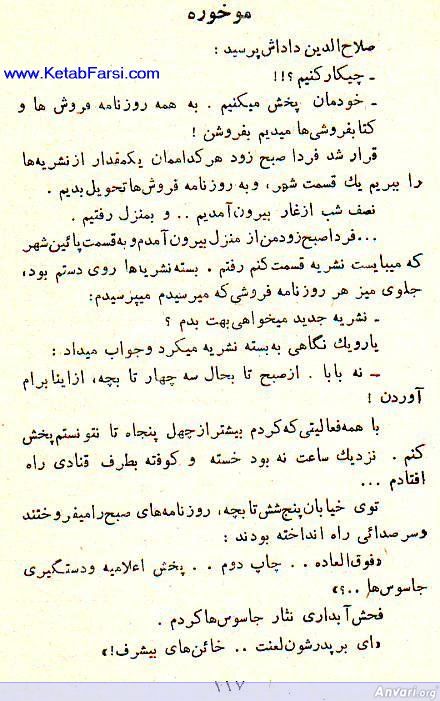 موخوره
صلاح‌الدین داداش پرسید :
www.KetabFarsi.com
ـ چیکارکنیم ؟!!
ـ خودمان پخش میکنیم . به همه روزنامه فروش ها و
کتابفروشی‌ها میدیم بفروشن !
قرار شد فردا صبح زود هرکداممان یکمقدار ازنشریه‌ها
را ببریم یك قسمت شهر، و به روزنامه فروش‌ها تحویل بدیم .
نصف شب ازغار بیرون‌آمدیم .. و بمنزل رفتیم .
...فرداصبح‌زودمن‌از منزل‌بیرون‌آمدم‌وبه‌قسمت‌پائین‌شهر
که میبایست نشریه قسمت‌کنم رفتم . بسته نشریه‌ها روی دستم بود،
جلوی میز هر روزنامه فروشی‌که میرسیدم میپرسیدم:
ـ نشریه جدید میخواهی بهت بدم ؟
یارویك نگاهی به‌بسته نشریه میکرد و جواب میداد :
ـ نه بابا . ازصبح تا بحال سه چهار تا بچه، ازاینا برام
آوردن !
با همه‌فعالیتی‌که‌کردم بیشترازچهل پنجاه تا نتونستم‌پخش
کنم . نزدیك ساعت نه بود خسته و کوفته بطرف قنادی راه
افتادم ...
توی خیابان‌پنج‌شش‌تابچه، روزنامه‌های صبح‌رامیفروختند
وسرصدائی راه انداخته بودند :
«فوق‌العاده . . چاپ دوم . . پخش اعلامیه ودستگیری
جاسوس‌ها ..؟»
فحش‌آبداری نثار جاسوس‌هاکردم .
«ای بر پدرشون لعنت .. خائن‌های بیشرف!»
۱۱۷
Anvari.org